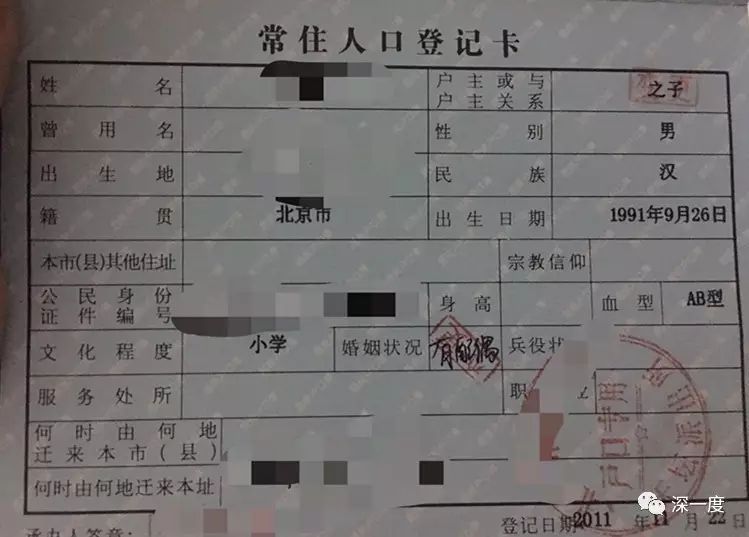 常住人口登记卡
姓名 户主或与户主关系 之子
曾用名 性别 男
出生地 民族 汉
籍贯 北京市 出生日期 1991年9月26日
本市(县)其他住址 宗教信仰
公民身份证件编号 身高 血型 AB型
文化程度 小学 婚姻状况 有配偶 兵役状
服务处所 职
何时由何地迁来本市(县)
何时由何地迁来本址
户口专用
派出所
承办人签章: 登记日期 2011 年 11 月 22 日
深一度